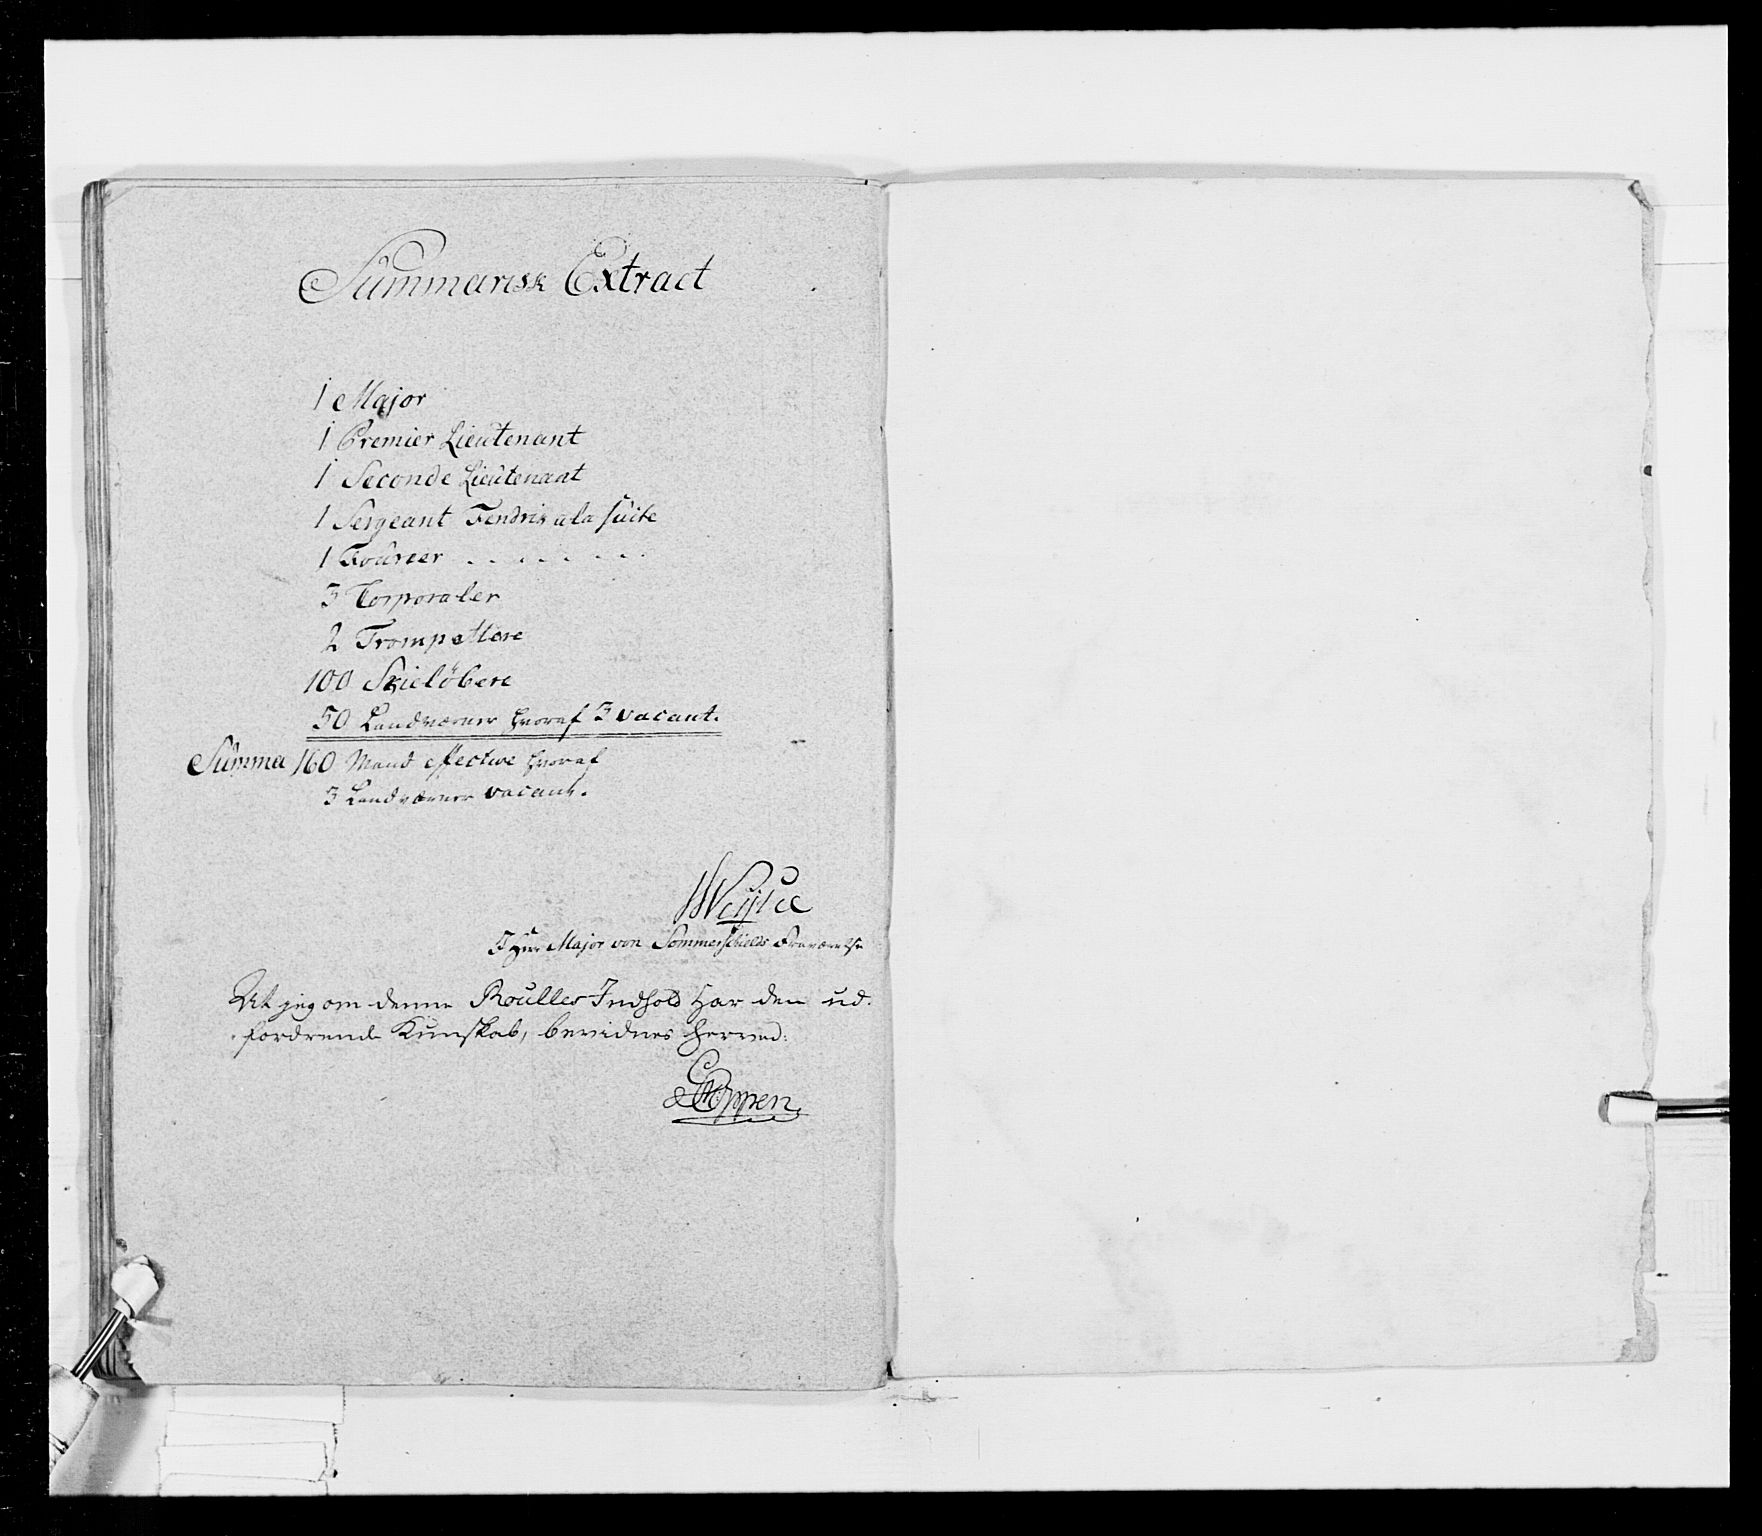 Summarisk Extract
1 Major
1 Premier Lieutenant
1 Seconde Lieutenant
1 Sergeant Fendrik a la suite
1 Foureer . . . . . . . .
3 Corporaler
2 Trompettere
100 Skielöbere
50 Landværner hvoraf 3 vacant.
Summa 160 Mand effective hvoraf
3 Landværner vacant.
I Hr: Major von Sommerschields Fraværelse
At jeg om denne Roulles Indhold har den ud-
fordrende Kunskab, bevidnes herved: